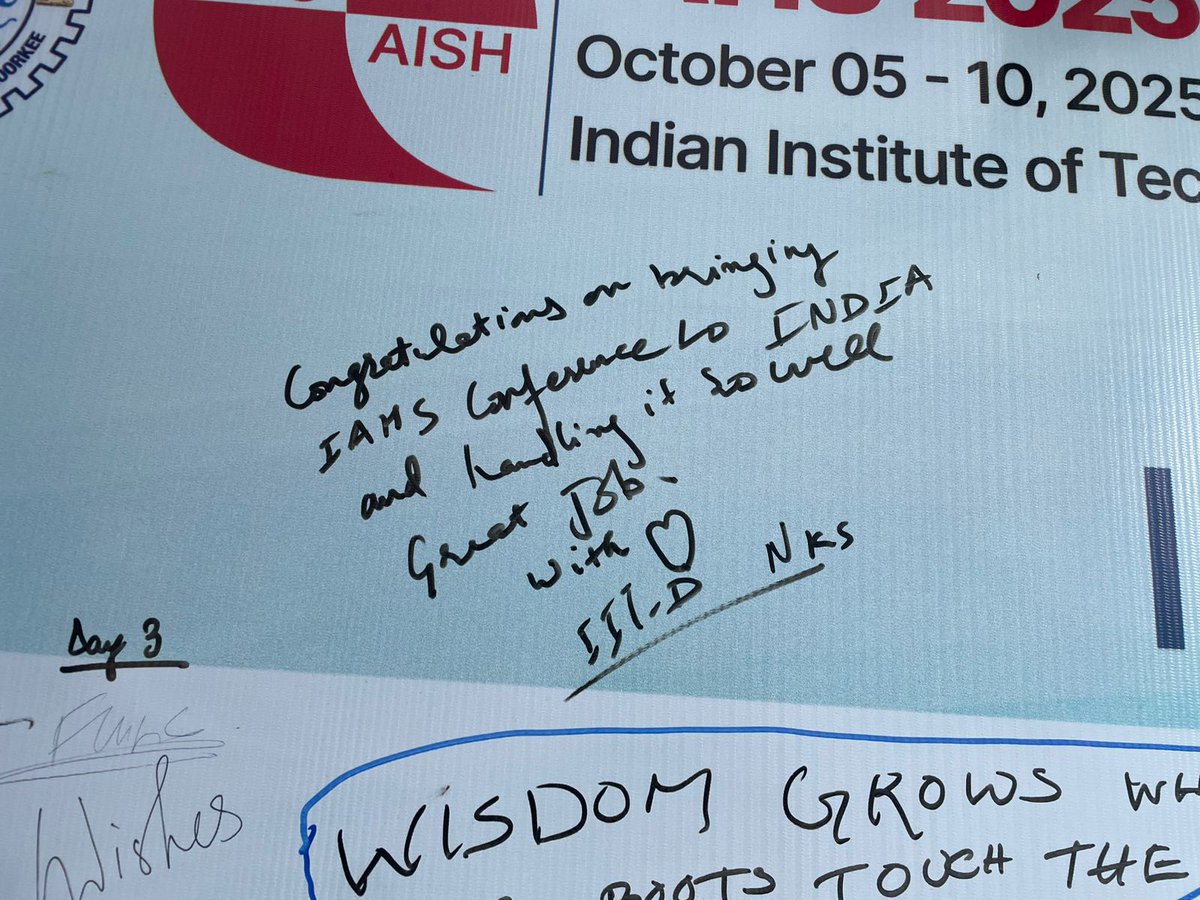 OORKEE
AISH
2025
October 05 - 10, 2025
Indian Institute of Tec
Congratulations on bringing
IAHS Conference to INDIA
and handling it so well
Great Job.
with ♡
IIT-D NKS
Day 3
Wishes
WISDOM GROWS WH
ROOTS TOUCH THE